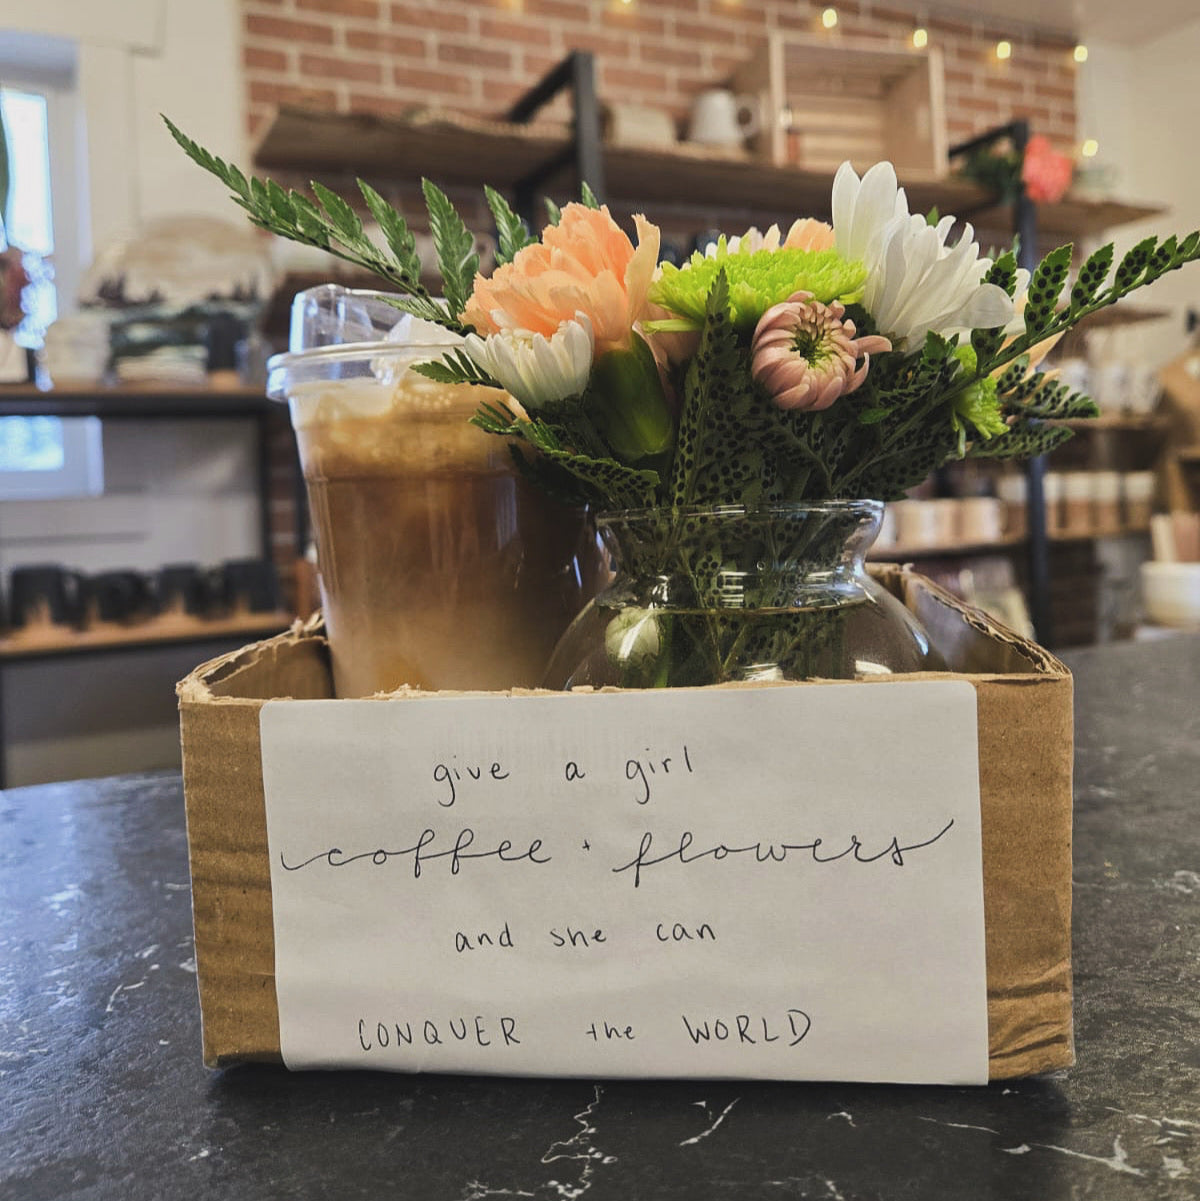 give a girl
coffee + flowers
and she can
CONQUER the WORLD